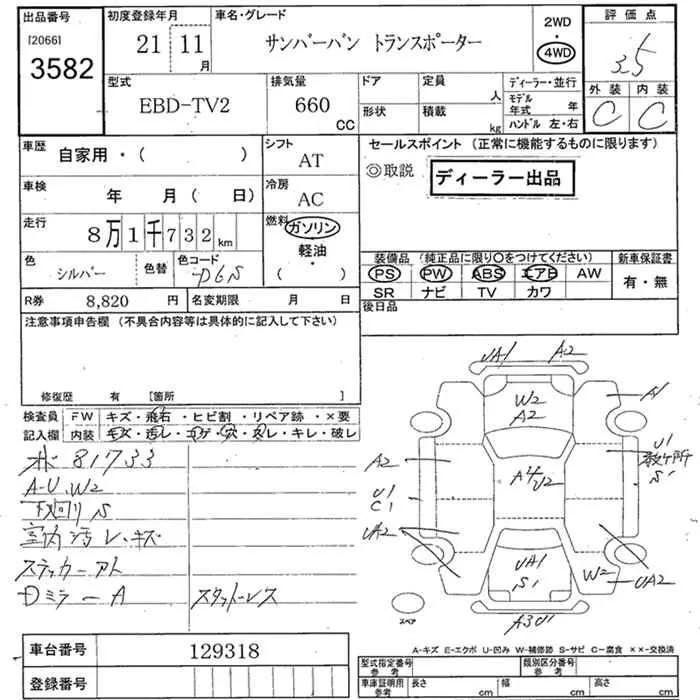 出品番号
[2066]
3582
初度登録年月
21 11 月
車名・グレード
サンバーバン トランスポーター
2WD
・
4WD
評価点
3.5
型式
EBD-TV2
排気量
660 CC
ドア
形状
定員 人
積載 kg
ディーラー・並行
モデル年式 年
ハンドル 左・右
外装 内装
C C
車歴
自家用・( )
シフト
AT
車検
年 月( 日)
冷房
AC
走行
8万1千732km
燃料
ガソリン
・
軽油
( )
色
シルバー
色替
色コード
R券 8,820 円
名変期限 月 日
セールスポイント (正常に機能するものに限ります)
◎取説
ディーラー出品
装備品 (純正品に限り○をつけてください)
PS PW ABS エアB AW
SR ナビ TV カワ
新車保証書
有・無
後日品
注意事項申告欄 (不具合内容等は具体的に記入して下さい)
修復歴 有 [箇所 ]
検査員記入欄
FW キズ・飛石・ヒビ割・リペア跡・×要
内装 キズ・汚レ・コゲ・穴・スレ・キレ・破レ
81733
A-U.W2
下廻りS
室内汚レ・キズ
ステッカーアト
DミラーA
スタットレス
UA1 A2
A1
W2
A2
A2
U1
数ヶ所
S1
A4
U2
U1
C1
UA2
UA1
S1
W2
UA2
A3U1
スペア
A-キズ E-エクボ U-凹み W-補修跡 S-サビ C-腐食 ××-交換済
車台番号
129318
登録番号
型式指定番号
参考
類別区分番号
参考
車庫証明用
参考
長さ cm
幅 cm
高さ cm